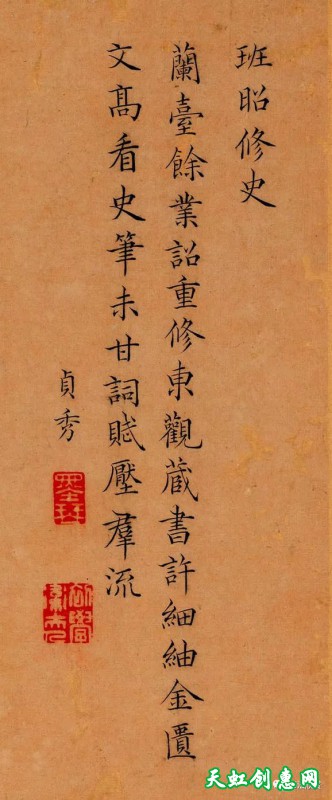 班昭修史
蘭臺餘業詔重修東觀藏書許細紬金匱
文髙看史筆未甘詞賦壓羣流
貞秀
墨琴
天虹创惠网